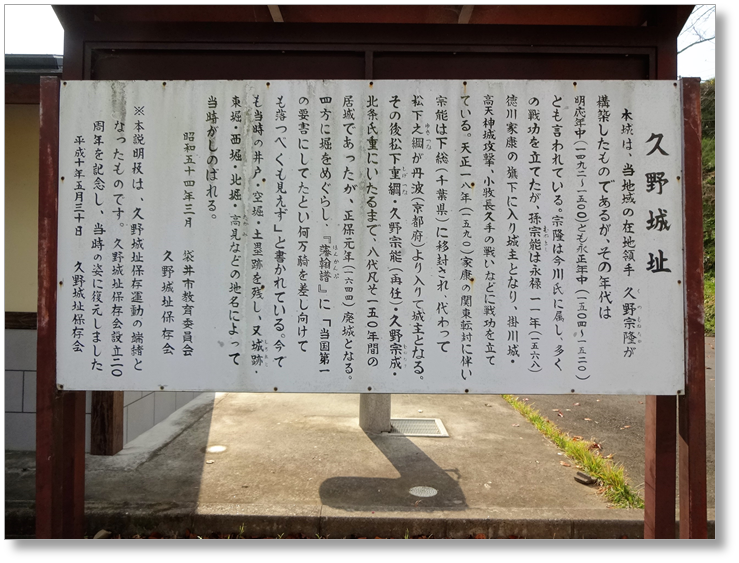 久野城址
本城は、当地域の在地領主 久野宗隆が
構築したものであるが、その年代は
明応年中(一四九二~一五〇〇)とも永正年中(一五〇四~一五二〇)
とも言われている。宗隆は今川氏に属し、多く
の戦功を立てたが、孫宗能は永禄一一年(一五六八)
徳川家康の麾下に入り城主となり、掛川城・
高天神城攻撃、小牧長久手の戦いなどに戦功を立て
ている。天正一八年(一五九〇)家康の関東転封に伴い
宗能は下総(千葉県)に移封され、代わって
松下之綱が丹波(京都府)より入りて城主となる。
その後松下重綱・久野宗能(再任)・久野宗成・
北条氏重にいたるまで、八代凡そ一五〇年間の
居城であったが、正保元年(一六四四)廃城となる。
四方に堀をめぐらし、『藩翰譜』に「当国第一
の要害にしてたとい何万騎を差し向けて
も落つべくも見えず」と書かれている。今で
も当時の井戸・空堀・土塁跡を残し、又城跡・
東堀・西堀・北堀・高見などの地名によって
当時がしのばれる。
昭和五十四年三月 袋井市教育委員会
久野城址保存会
※本説明板は、久野城址保存運動の端緒と
なったものです。久野城址保存会設立二〇
周年を記念し、当時の姿に復元しました
平成十年五月三十日 久野城址保存会